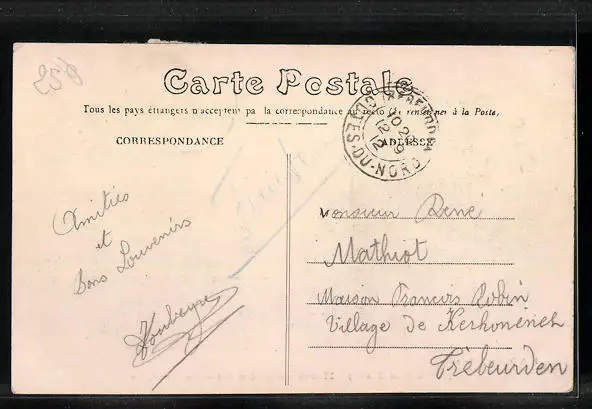 25
Carte Postale
Tous les pays étrangers n'acceptent pas la correspondance au recto (Se renseigner à la Poste)
CORRESPONDANCE
ADRESSE
TREBEURDEN
20-9
12
COTES-DU-NORD
Amitiés
et
Bons Souvenirs
Monsieur René
Mathiot
Maison Francois Robin
Village de
Trébeurden